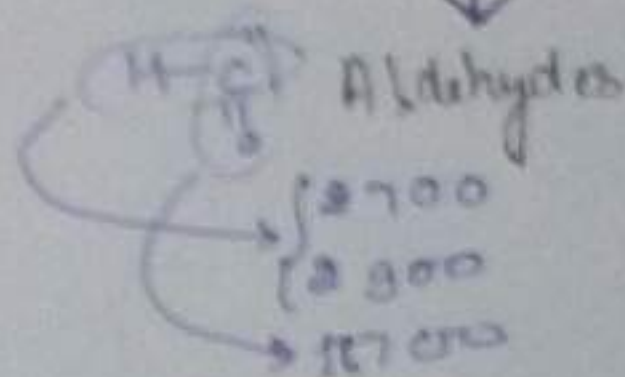 H-C Aldehydes
O
2700
2900
1700